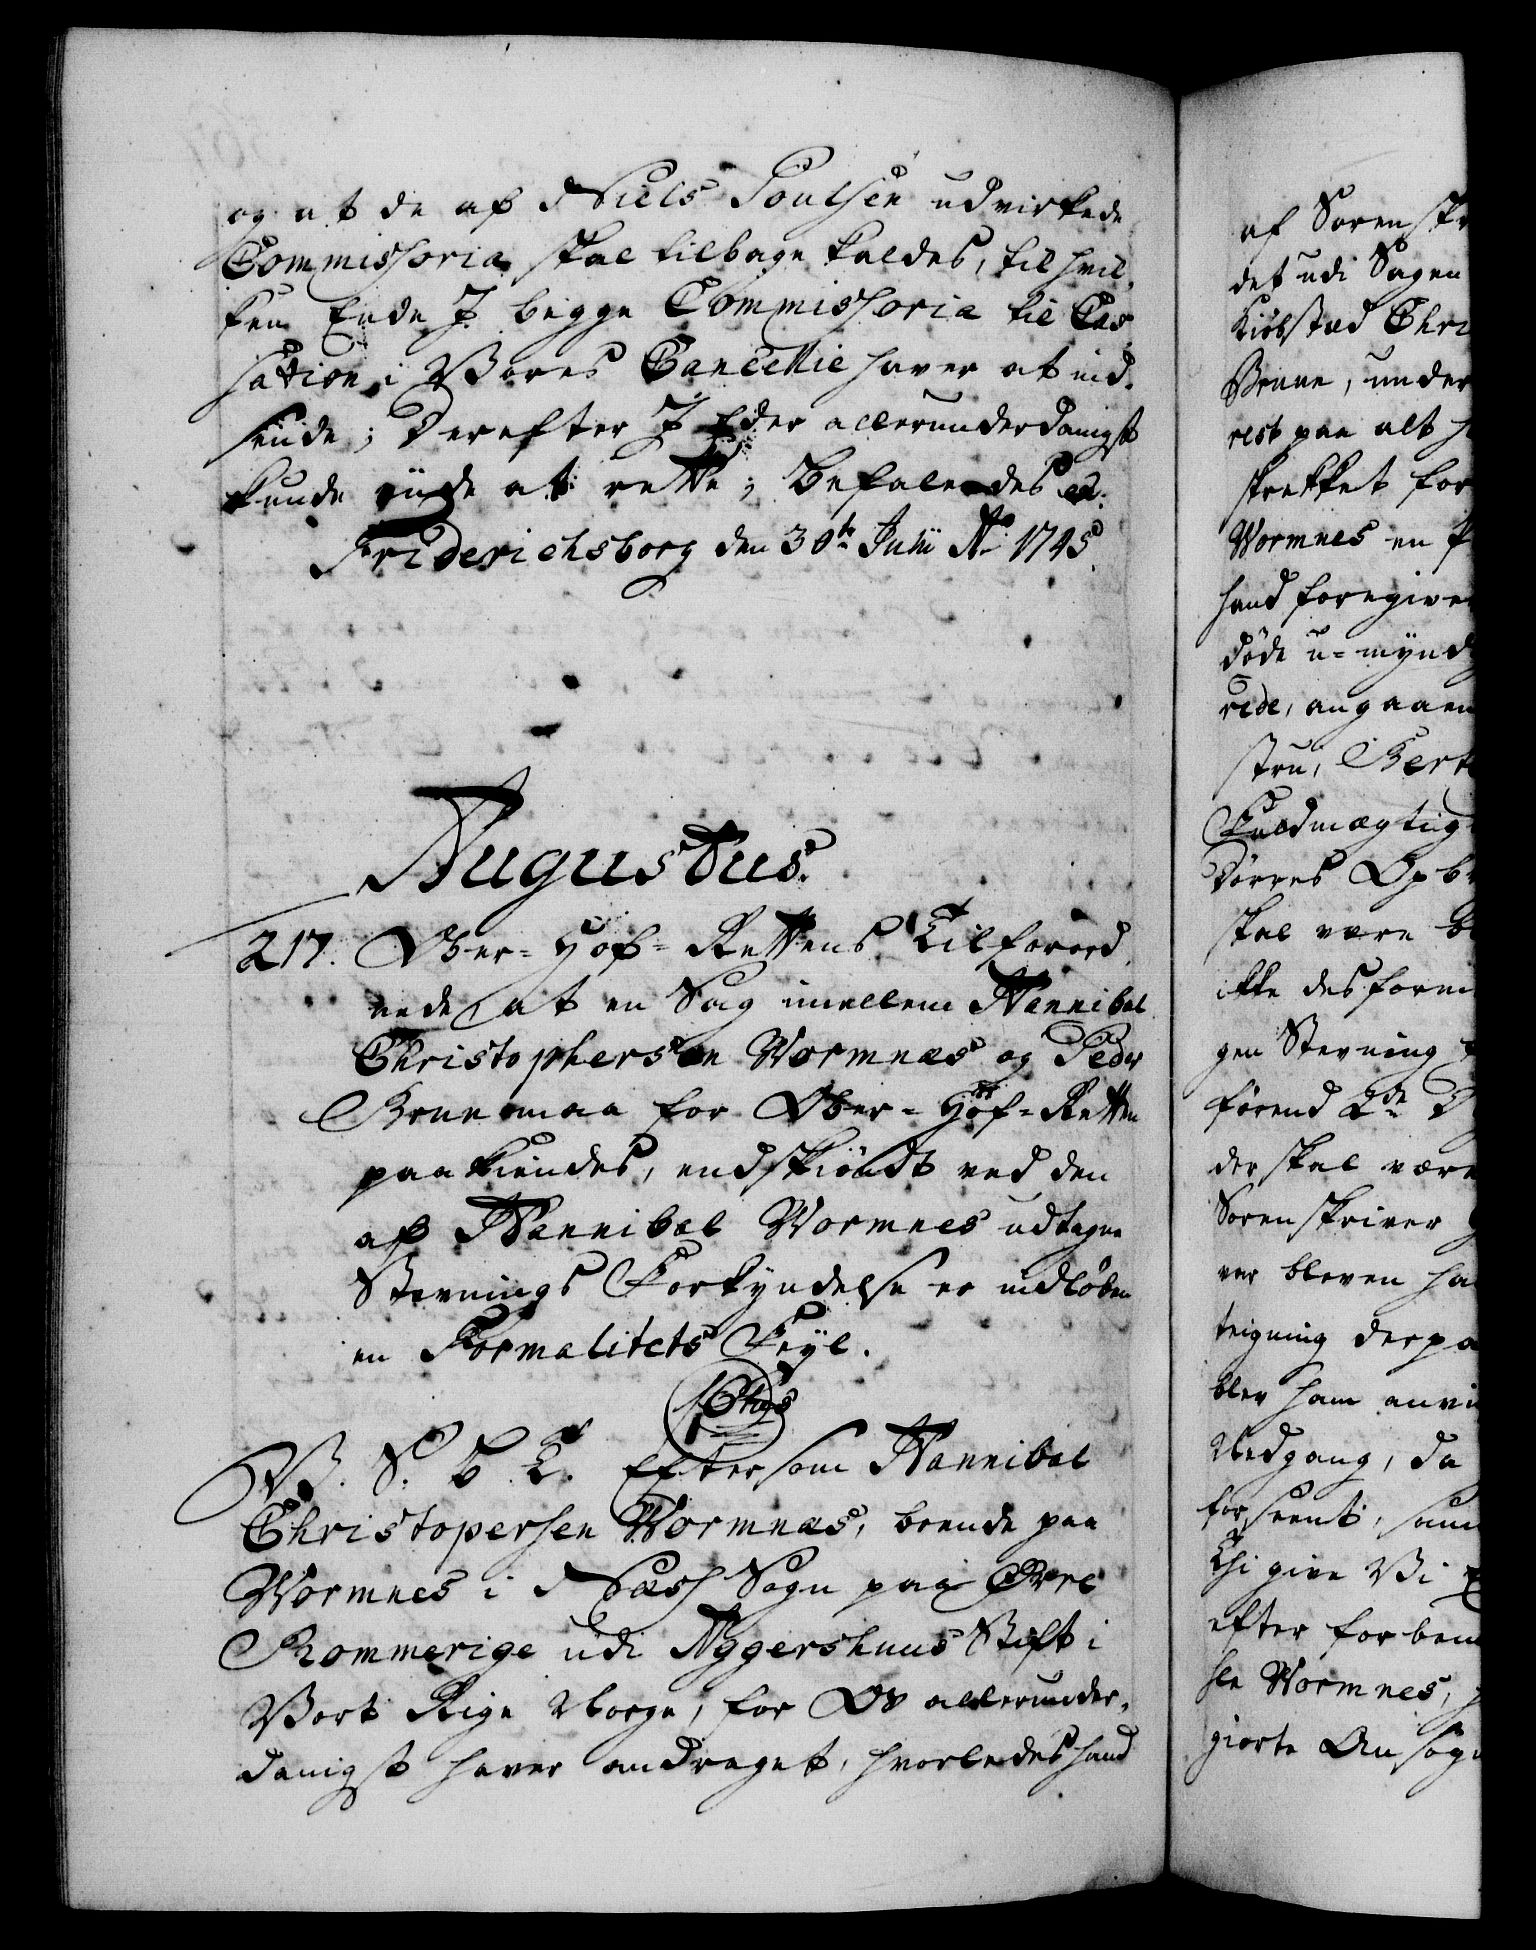 og at de af Niels Poulsen udvirkede
Commissoria skal tilbage kaldes, til hvil-
ken Ende I begge Commissoria til Cas-
sation i Vores Cancellie haver at ind-
sende; Derefter I Eder allerunderdanigst
kunde vide at rette; Befalendes etc.
Friderichsborg den 30te Julii Ao 1745.
Augustus.
217. Ober-Hof-Rettens Tilforord-
nede at en Sag imellem Hannibal
Christophersen Wormnæs og Peder
Brunemaa for Ober-Hof-Retten
paakiendes, endskiøndt ved den
af Hannibal Wormnes udtagne
Stevnings Forkyndelse er indløben
en Formalitets Feyl.
V. S. G. T. Eftersom Hannibal
Christopersen Wormnæs, boende paa
Wormnes i Næss Sogn paa Øvre
Rommerige udi Aggershuus Stift i
Vort Rige Norge, for Os allerunder-
danigst haver andraget, hvorledes hand
af Sorenskr
det udi Sagen
Kiøbstæd Chri
Brune, under
rest paa alt h
skrekket for
Wormnes en
hand foregive
døde u-mynd
rede, angaaen
stru, Bert
Fuldmægtig
Dørres Opb
skal være b
ikke desform
gen Stevning
førend 2de
der skal være
Sorenskriver
var bleven ha
teigning derpa
blev ham anvi
Nedgang, da
forseent, sam
Thi give Vi
efter forben
sle Wormnes,
giorte Ansøgn